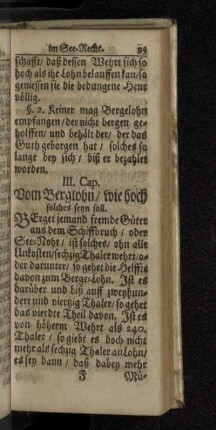 im See-Recht. 95
schafft/ daß dessen Wehrt sich so
hoch als ihr Lohn belauffen kan/ so
geniessen sie die bedungene Heur
völlig.
§. 2. Keiner mag Bergelohn
empfangen/ der nicht bergen ge-
holffen/ und behält der/ der das
Guth geborgen hat/ solches so
lange bey sich/ biß er bezahlet
worden.
III. Cap.
Vom Berglohn/ wie hoch
solches seyn soll.
BErget jemand fremde Güter
aus dem Schiffbruch/ oder
See-Noht/ ist solches/ ohn alle
Unkosten/ sechzig Thaler wehrt/ o-
der darunter/ so gehet die Helffte
davon zum Berge-Lohn. Ist es
darüber und biß auff zweyhun-
dert und viertzig Thaler/ so gehet
das vierdte Theil davon. Ist es
von höherm Wehrt als 240.
Thaler/ so giebt es doch nicht
mehr als sechzig Thaler an Lohn/
es sey dann/ daß dabey mehr
Mü-